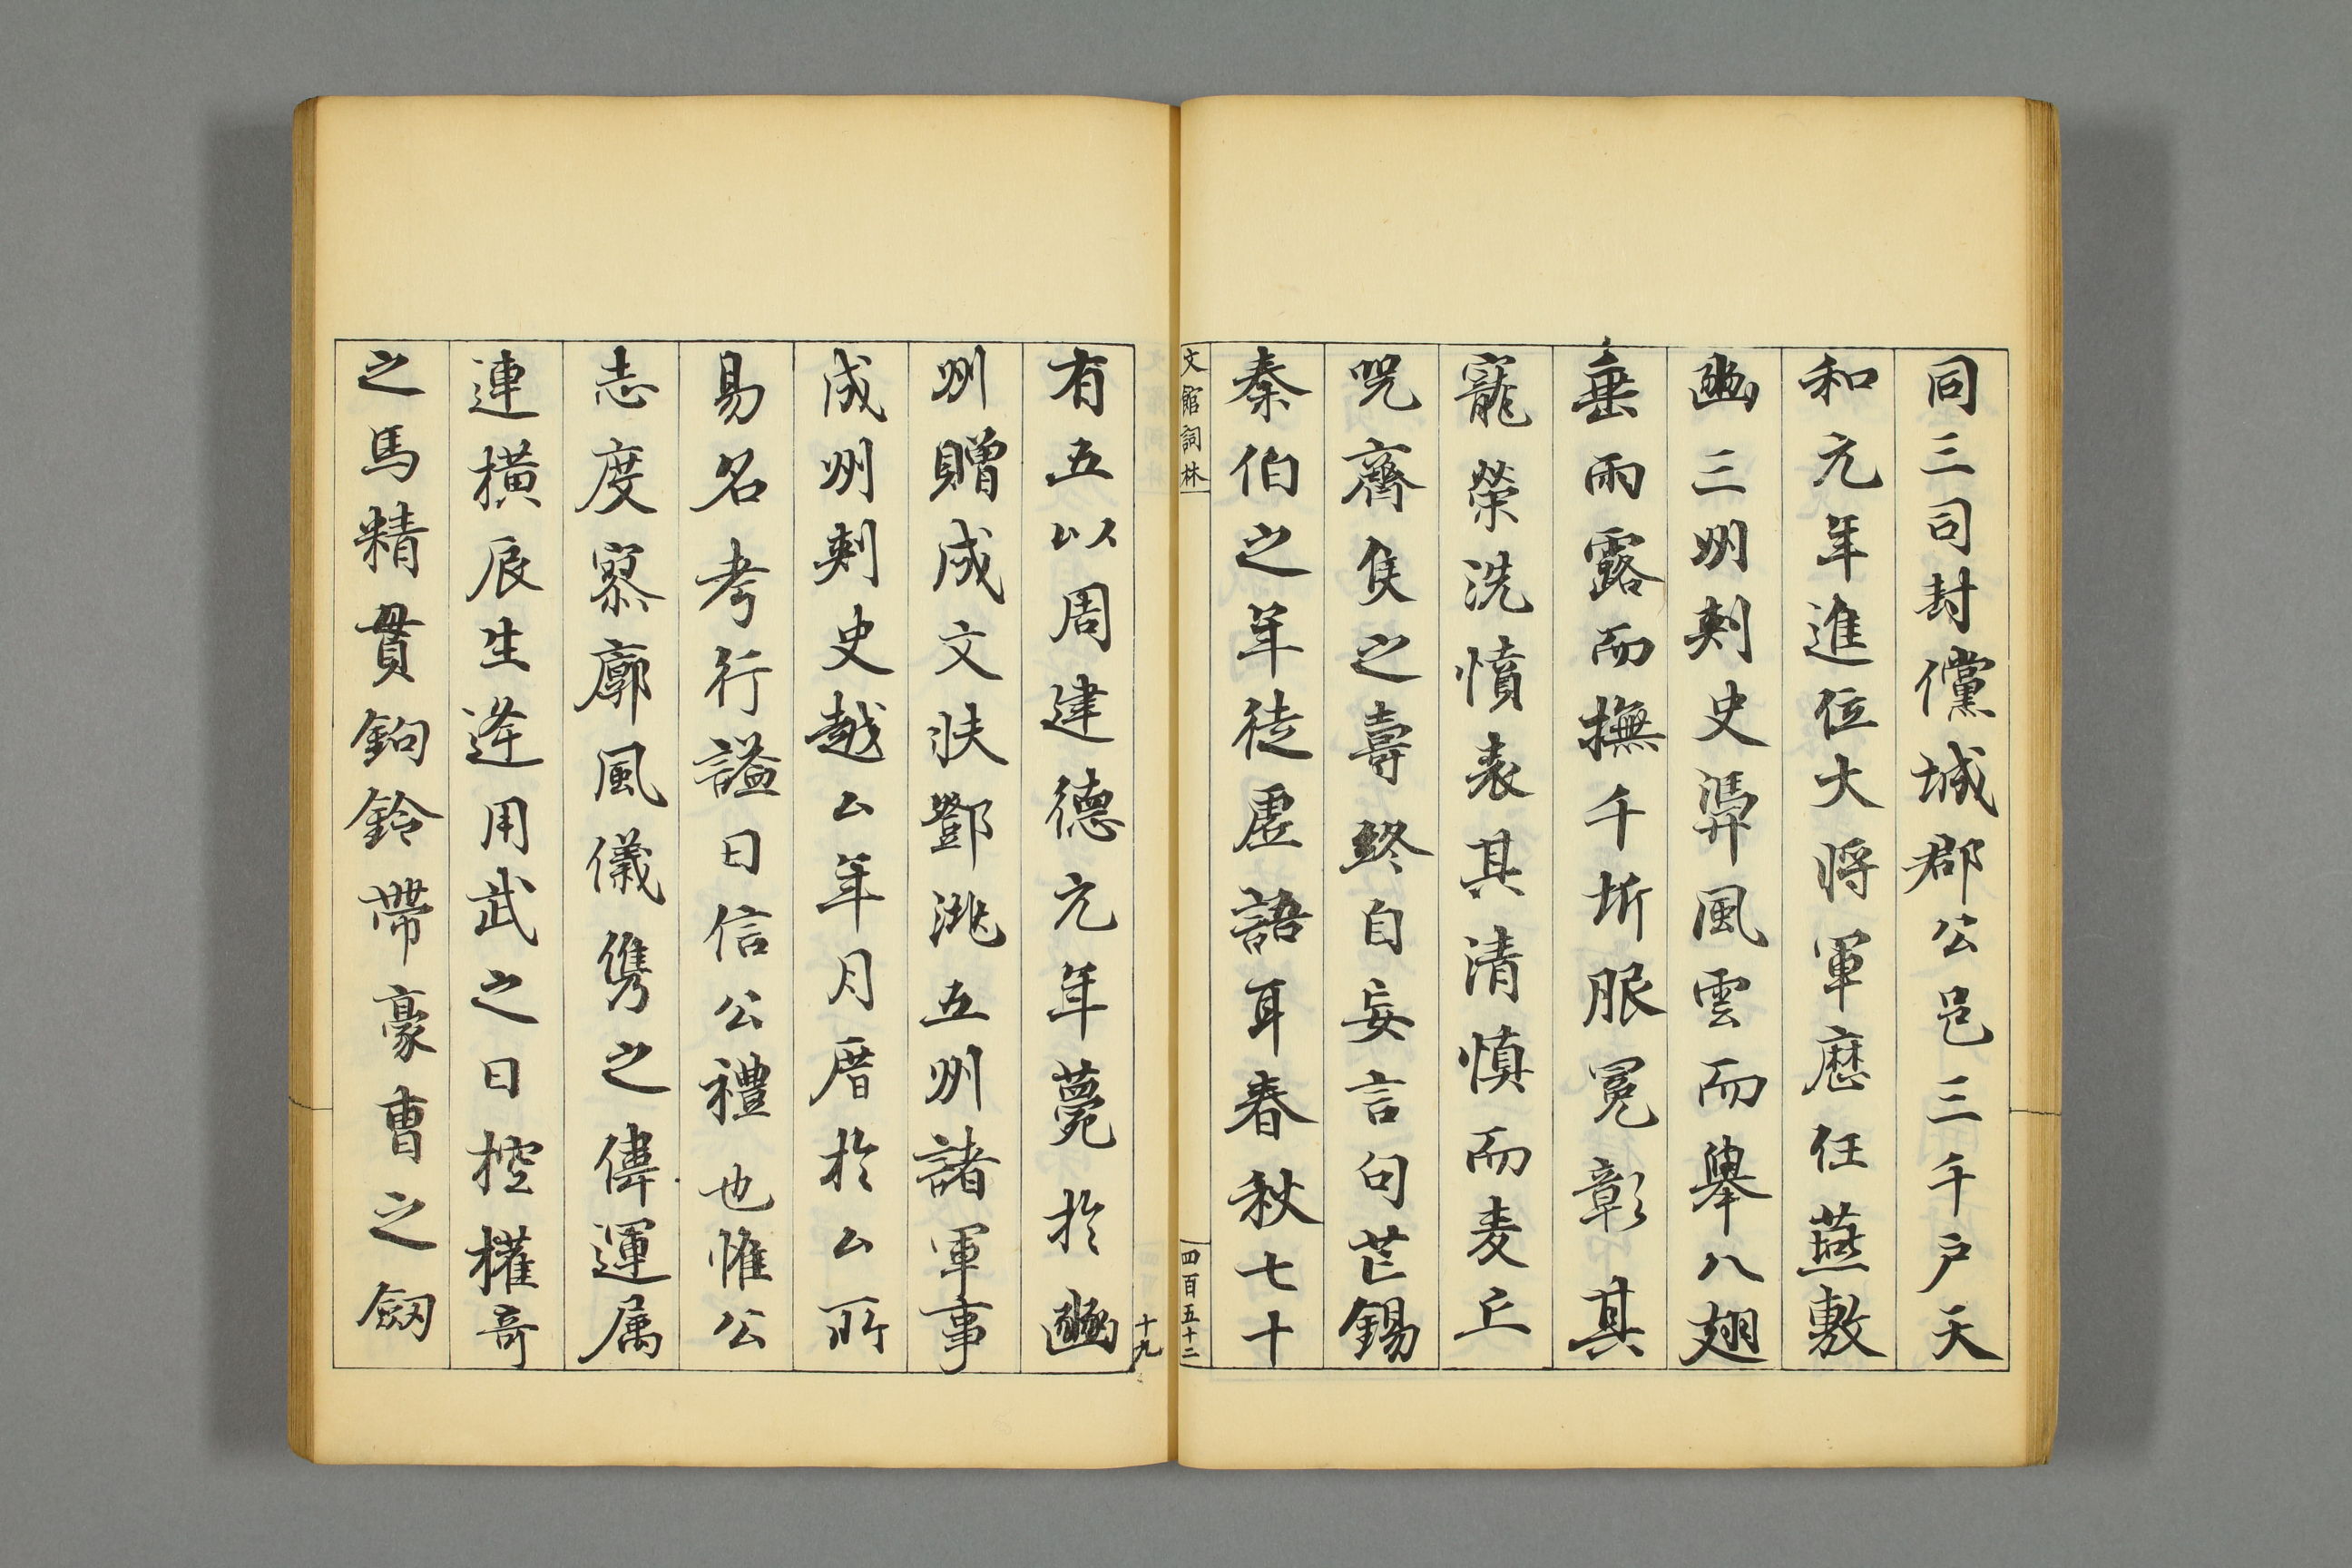 同三司封儻城郡公邑三千戶天
和元年進位大將軍歷任燕敷
豳三州刺史馮羿風雲而舉八翅
垂雨露而撫千圻服冕彰其
寵榮洗憤表其清慎而麦丘
呪齊侯之壽終自妄言句芒錫
秦伯之年徒虛語耳春秋七十
文館詞林
四百五十二
十九
有五以周建德元年薨於豳
州贈成文扶鄧洮五州諸軍事
成州刺史越厶年月厝於厶所
易名考行謚曰信公禮也惟公
志度察廓風儀儁之偉運属
連橫辰生逢用武之日控權奇
之馬精貫鉤鈴帶豪曹之劔